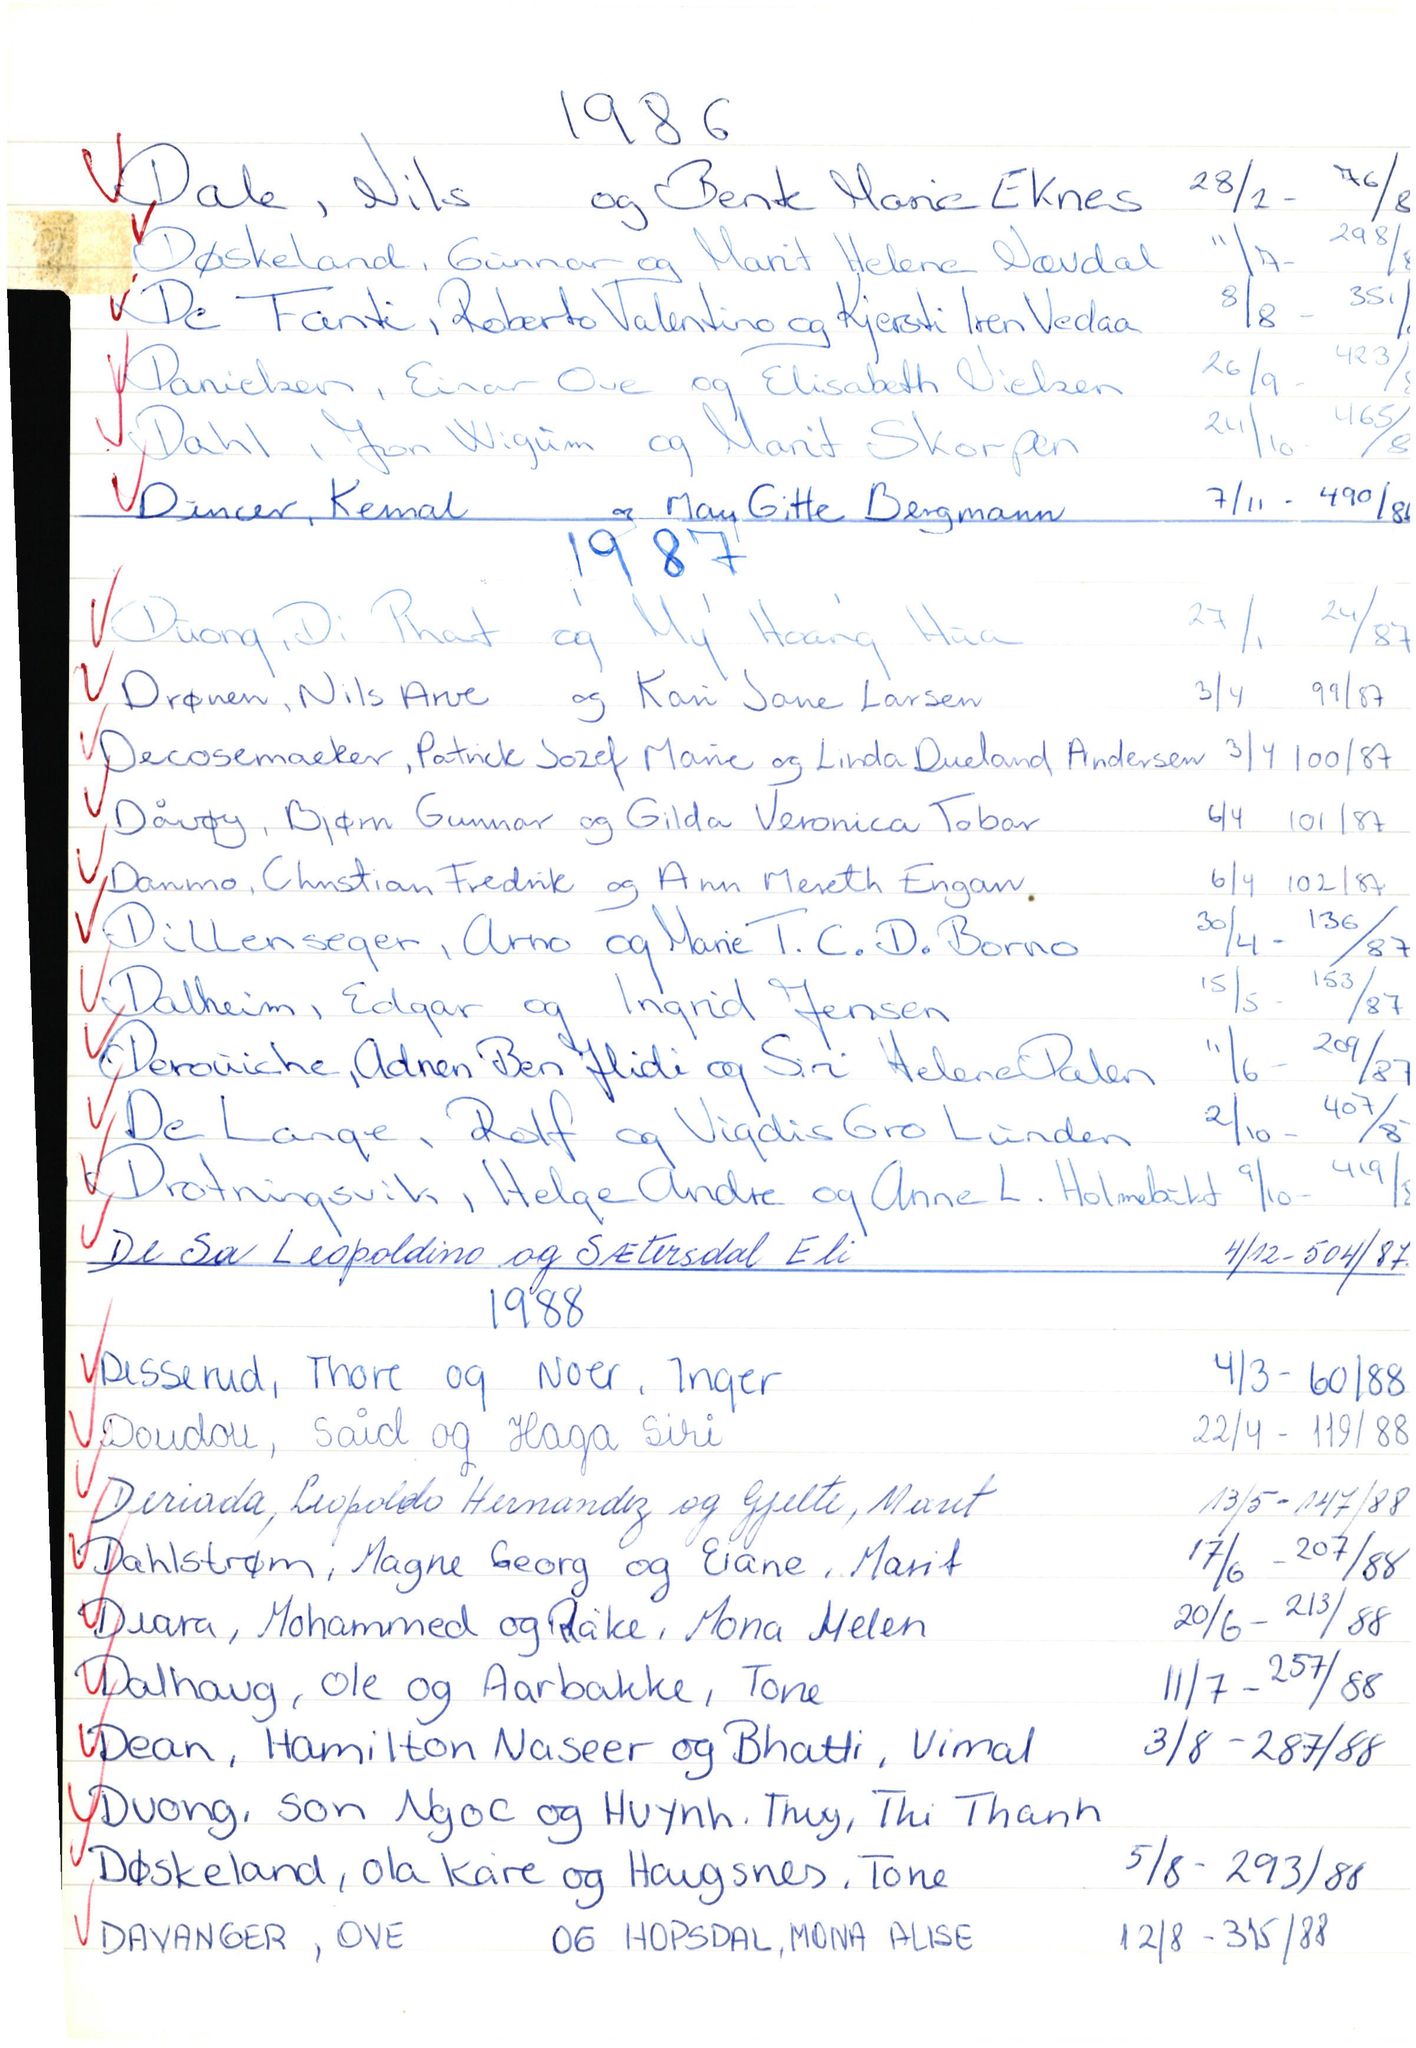 1986
Dale, Nils og Bente Marie Eknes 28/2 - 76/8
Døskeland, Gunnar og Marit Helene Nævdal 11/7 - 298/8
De Fanti, Roberto Valentino og Kjersti Iren Vedaa 8/8 - 351/
Danielsen, Einar Ove og Elisabeth Nielsen 26/9 - 423/8
Dahl, Jon Wigum og Marit Skorpen 24/10 - 465/8
Dincer, Kemal og May Gitte Bergmann 7/11 - 490/86
1987
Duong, Di Phat og Mý Hoang Hua 27/1 24/87
Drønen, Nils Arve og Kari Jane Larsen 3/4 99/87
Decosemaeker, Patrick Jozef Marie og Linda Dueland Andersen 3/4 100/87
Dåvøy, Bjørn Gunnar og Gilda Veronica Tobar 6/4 101/87
Danmo, Christian Fredrik og Ann Mereth Engan. 6/4 102/87
Dillenseger, Arno og Marie T. C. D. Borno 30/4 - 136/87
Dalheim, Edgar og Ingrid Jensen 15/5 - 153/87
Derouiche, Adnen Ben Hidi og Siri Helene Dalen 11/6 - 209/87
De Lange, Rolf og Vigdis Gro Lunden 2/10 - 407/8
Drotningsvik, Helge Andre og Anne L. Holmebakt 9/10 - 419/8
De Sa Leopoldino og Sætersdal Eli 4/12 - 504/87.
1988
Disserud, Thore og Noer, Inger 4/3 - 60/88
Doudou, Saïd og Haga Siri 22/4 - 119/88
Deriada, Leopoldo Hernandez og Gjelte, Marit 13/5 - 147/88
Dahlstrøm, Magne Georg og Eiane, Marit 17/6 - 207/88
Diara, Mohammed og Råke, Mona Helen 20/6 - 213/88
Dalhaug, Ole og Aarbakke, Tone 11/7 - 257/88
Dean, Hamilton Naseer og Bhatti, Vimal 3/8 - 287/88
Duong, Son Ngoc og Huynh. Thuy, Thi Thanh
Døskeland, Ola Kåre og Haugsnes, Tone 5/8 - 293/88
DAVANGER, OVE OG HOPSDAL, MONA ALISE 12/8 - 315/88